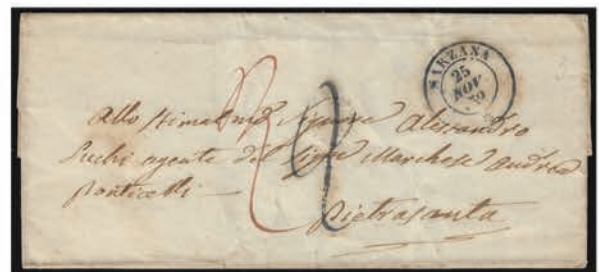 SARZANA
25
NOV
Allo Stimatmo Signore Alessandro
agente del Sigre Marchese Andrea
Ponticelli
Pietrasanta